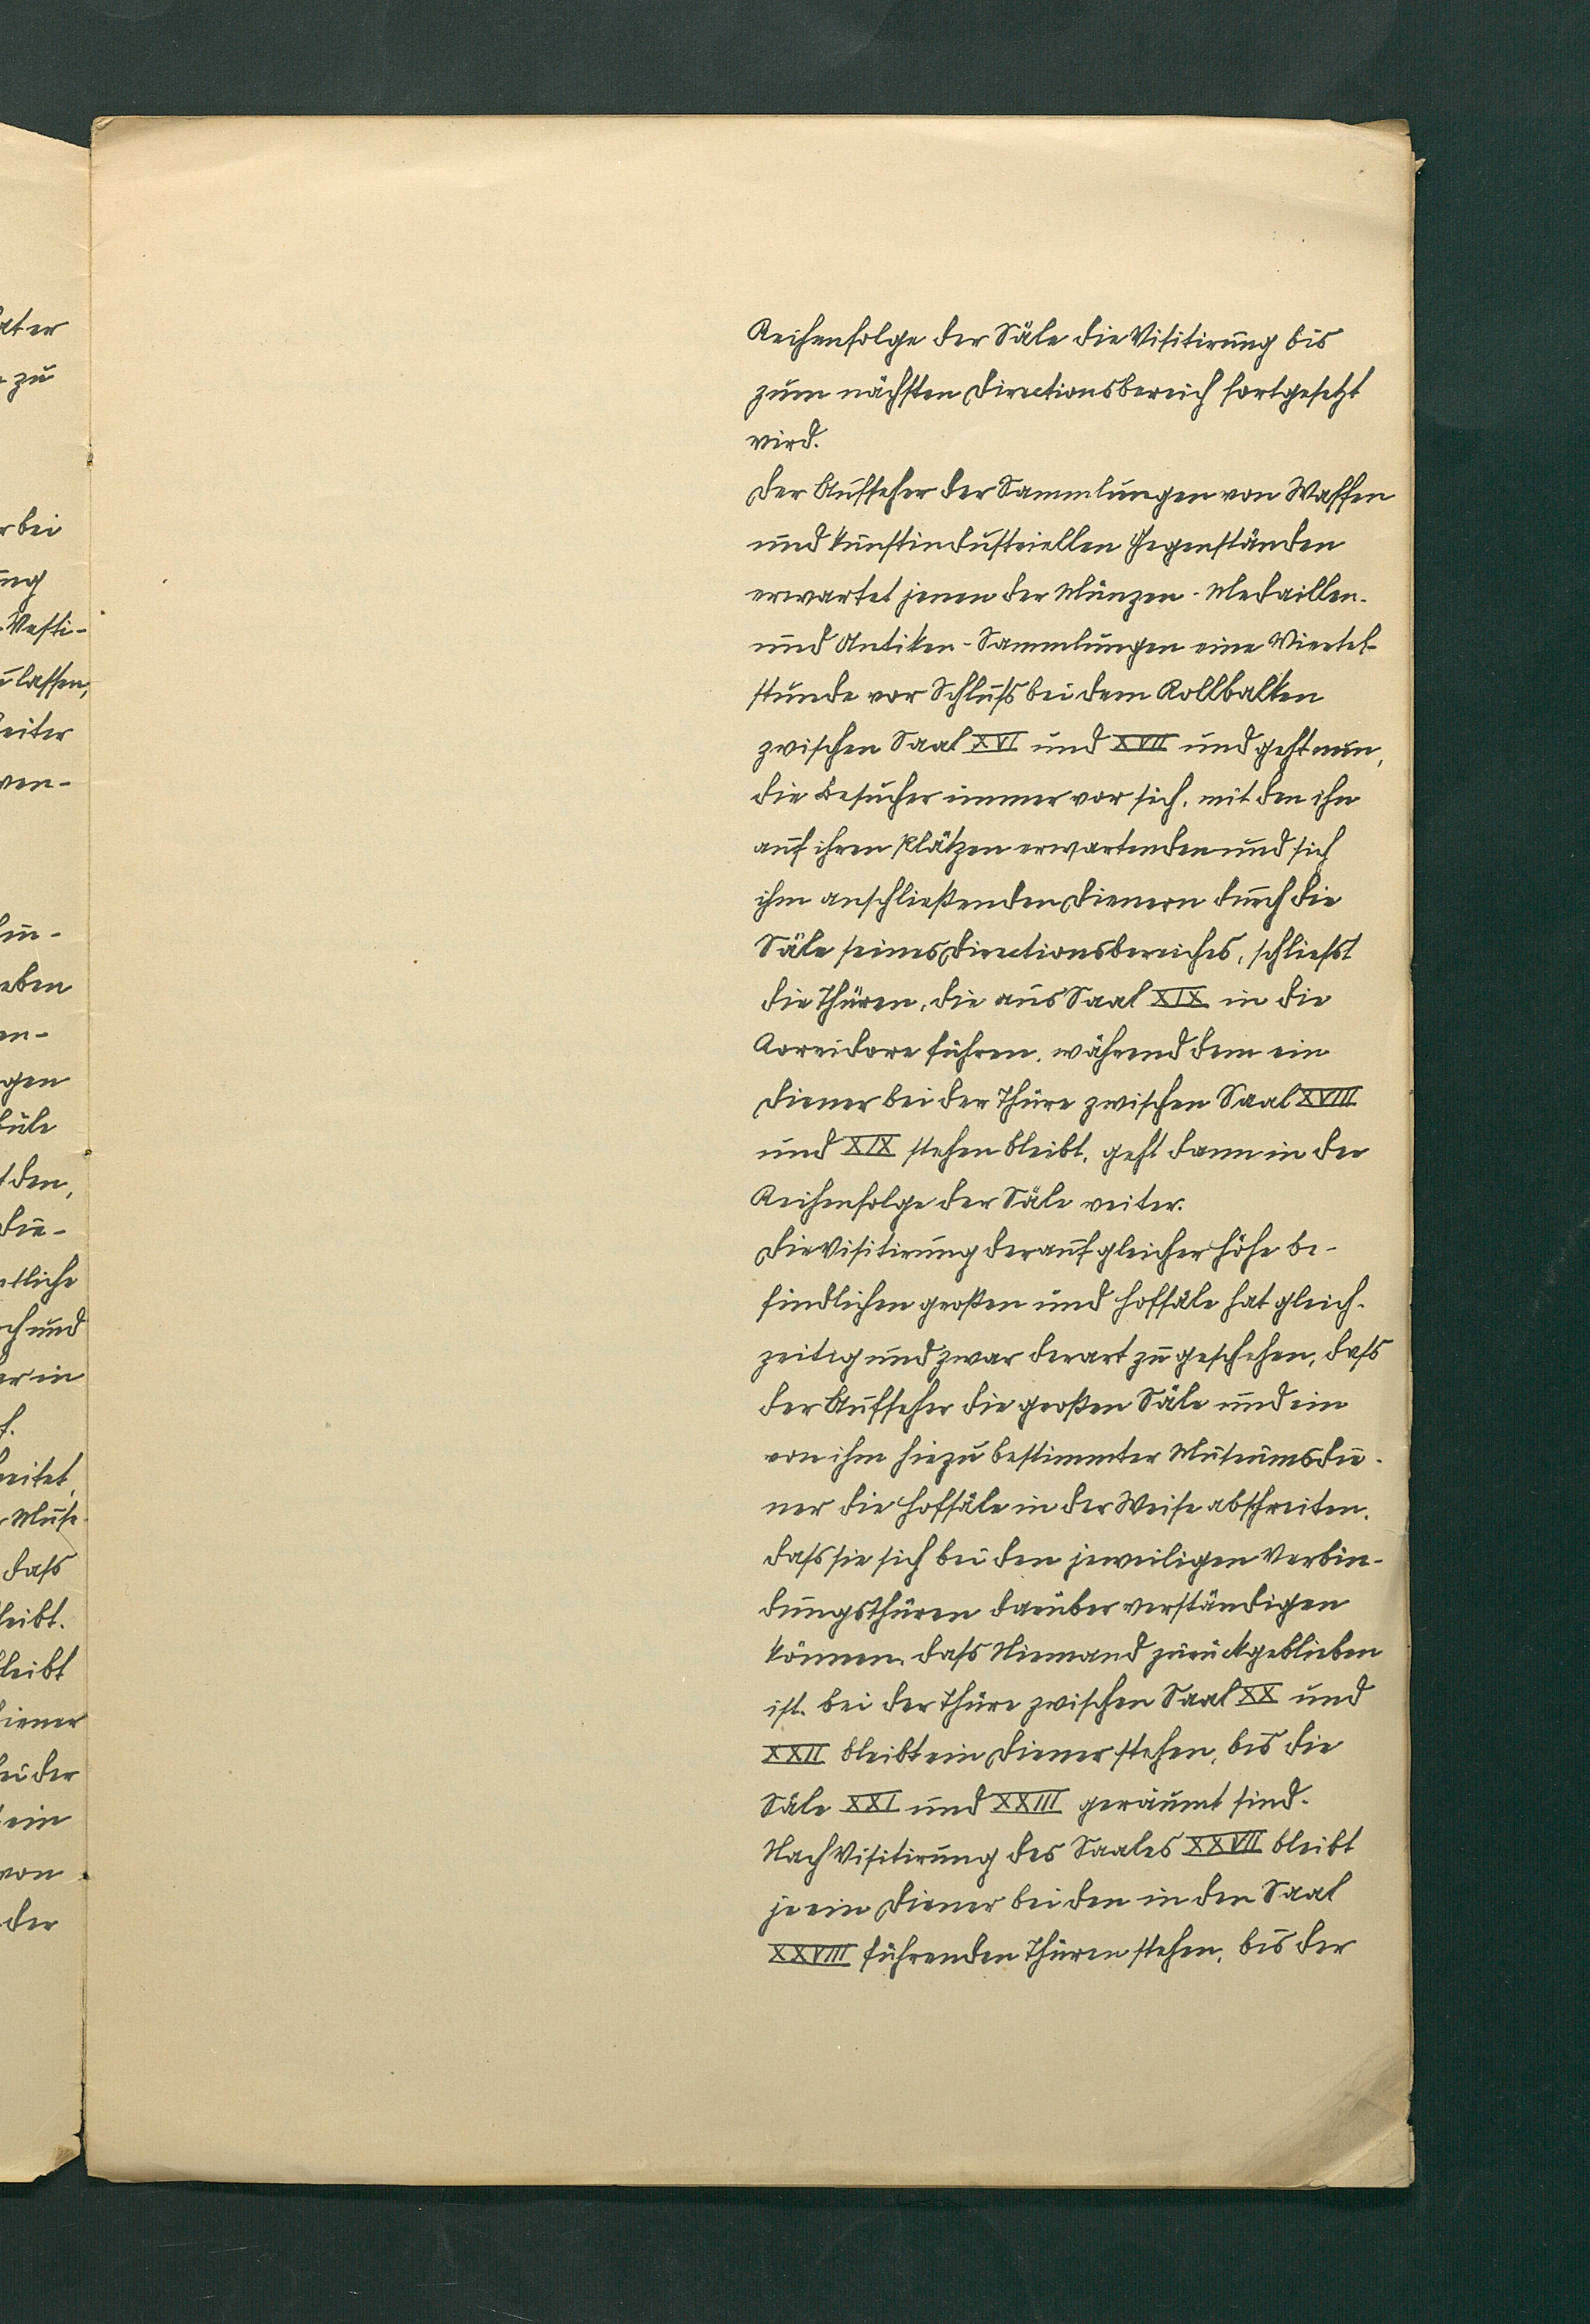 ater
zu
bei
ung
Vesti-
lassen,
eiter
wen-
eben
en-
gen
büle
den,
die-
ntliche
ch und
er in
reitet,
Muse-
dass
leibt.
leibt
diener
bei der
ein
von
der
Reihenfolge der Säle die Visitirung bis
zum nächsten Directionsbereich fortgesetzt
wird.
Der Aufseher der Sammlungen von Waffen
und kunstindustriellen Gegenständen
erwartet jenen der Münzen- Medaillen-
und Antiken-Sammlungen eine Viertel-
stunde vor Schluss bei dem Rollbalken
zwischen Saal XVI und XVII und geht nun,
die Besucher immer vor sich, mit den ihn
auf ihren Plätzen erwartenden und sich
ihm anschließenden Dienern durch die
Säle seines Directionsbereiches, schliesst
die Thüren, die aus Saal XIX in die
Korridore führen, während dem ein
Diener bei der Thüre zwischen Saal XVIII
und XIX stehen bleibt, geht dann in der
Reihenfolge der Säle weiter.
Die Visitirung der auf gleicher Höhe be-
findlichen großen und Hofsäle hat gleich-
zeitig und zwar derart zu geschehen, dass
der Aufseher die großen Säle und ein
von ihm hiezu bestimmter Museumsdie-
ner die Hofsäle in der Weise abschreiten,
dass sie sich bei den jeweiligen Verbin-
dungsthüren darüber verständigen
können, dass Niemand zurückgeblieben
ist. bei der Thüre zwischen Saal XX und
XXII bleibt ein Diener stehen, bis die
Säle XXI und XXIII geräumt sind.
Nach Visitirung des Saales XXVII bleibt
je ein Diener bei den in den Saal
XXVIII führenden Thüren stehen, bis der